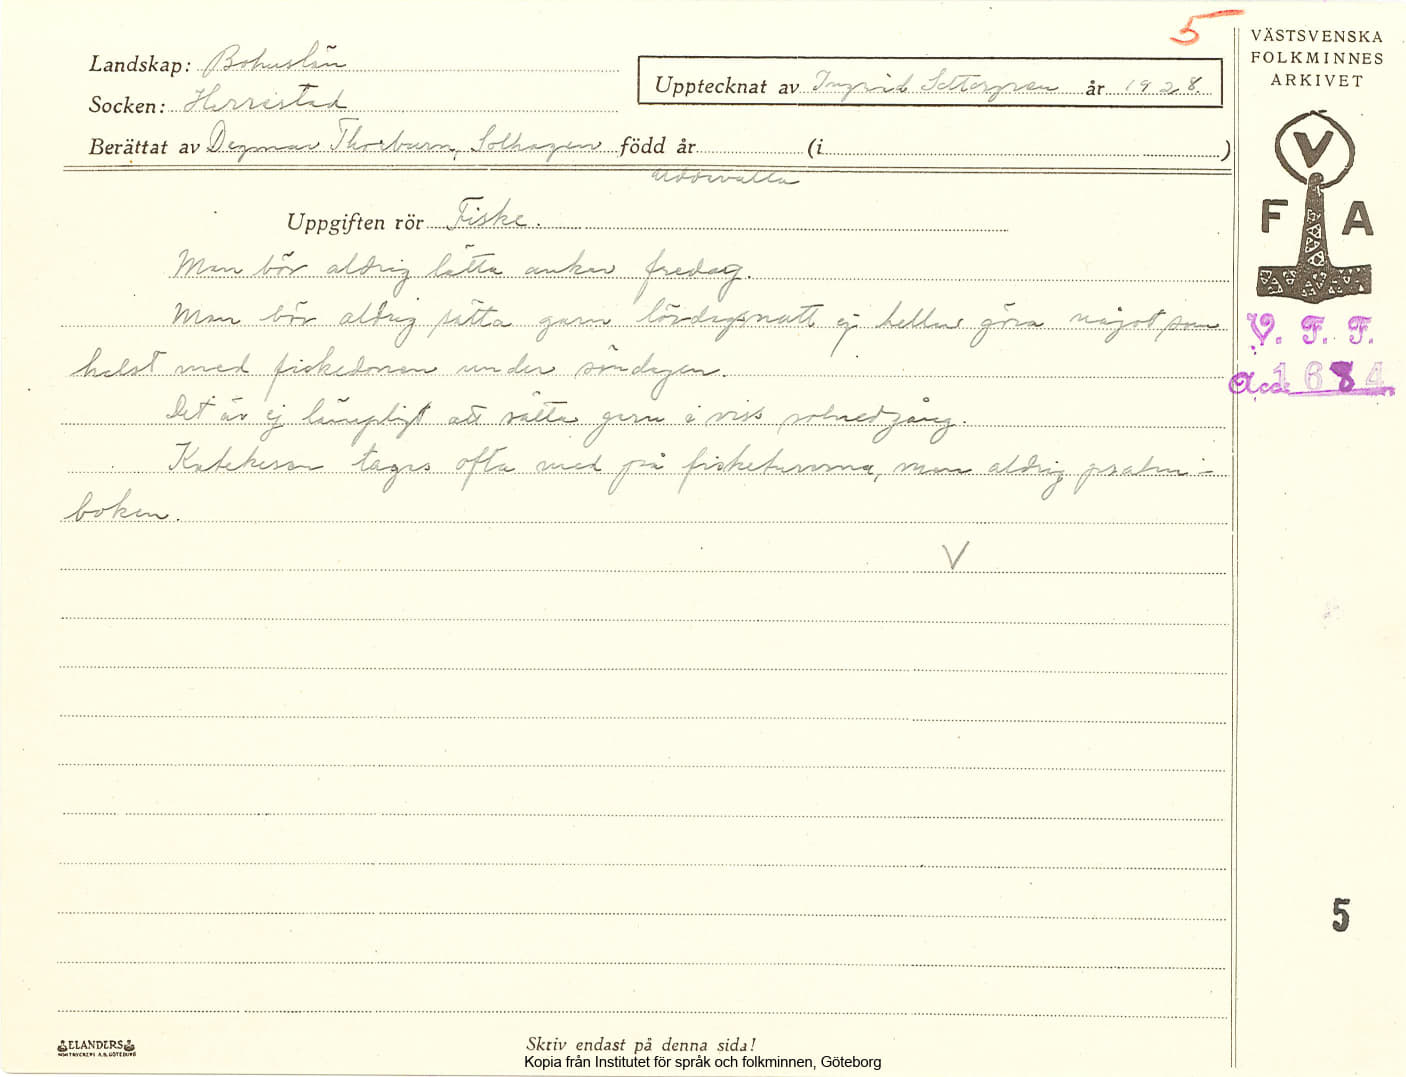 5
VÄSTSVENSKA
FOLKMINNES
ARKIVET
Landskap: Bohuslän
Upptecknat av Ingrid Settergren år 1928.
Socken: Herrestad
Berättat av Dagmar Thorburn, Solhagen född år (i )
Uddevalla
V
F A
Uppgiften rör Fiske.
Man bör aldrig lätta ankar fredag.
Man bör aldrig sätta garn lördagsnatt ej heller göra något som
helst med fiskedonen under söndagen.
Det är ej lämpligt att sätta garn i viss solnedgång.
Katekesen tages ofta med på fisketurerna, men aldrig psalm-
boken.
V
V. F. F.
Acc. 1684
5
ELANDERS
BOKTRYCKERI A.B. GÖTEBORG
Skriv endast på denna sida!
Kopia från Institutet för språk och folkminnen, Göteborg